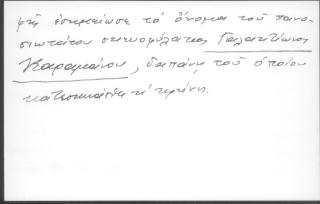 φὴ ἐσημείωσε τὸ ὄνομα τοῦ πανο-
σιωτάτου σκευοφύλακος Γαλακτίωνος
Καραμάνου, δαπάνῃ τοῦ ὁποίου
κατεσκευάσθη ἡ κρήνη.